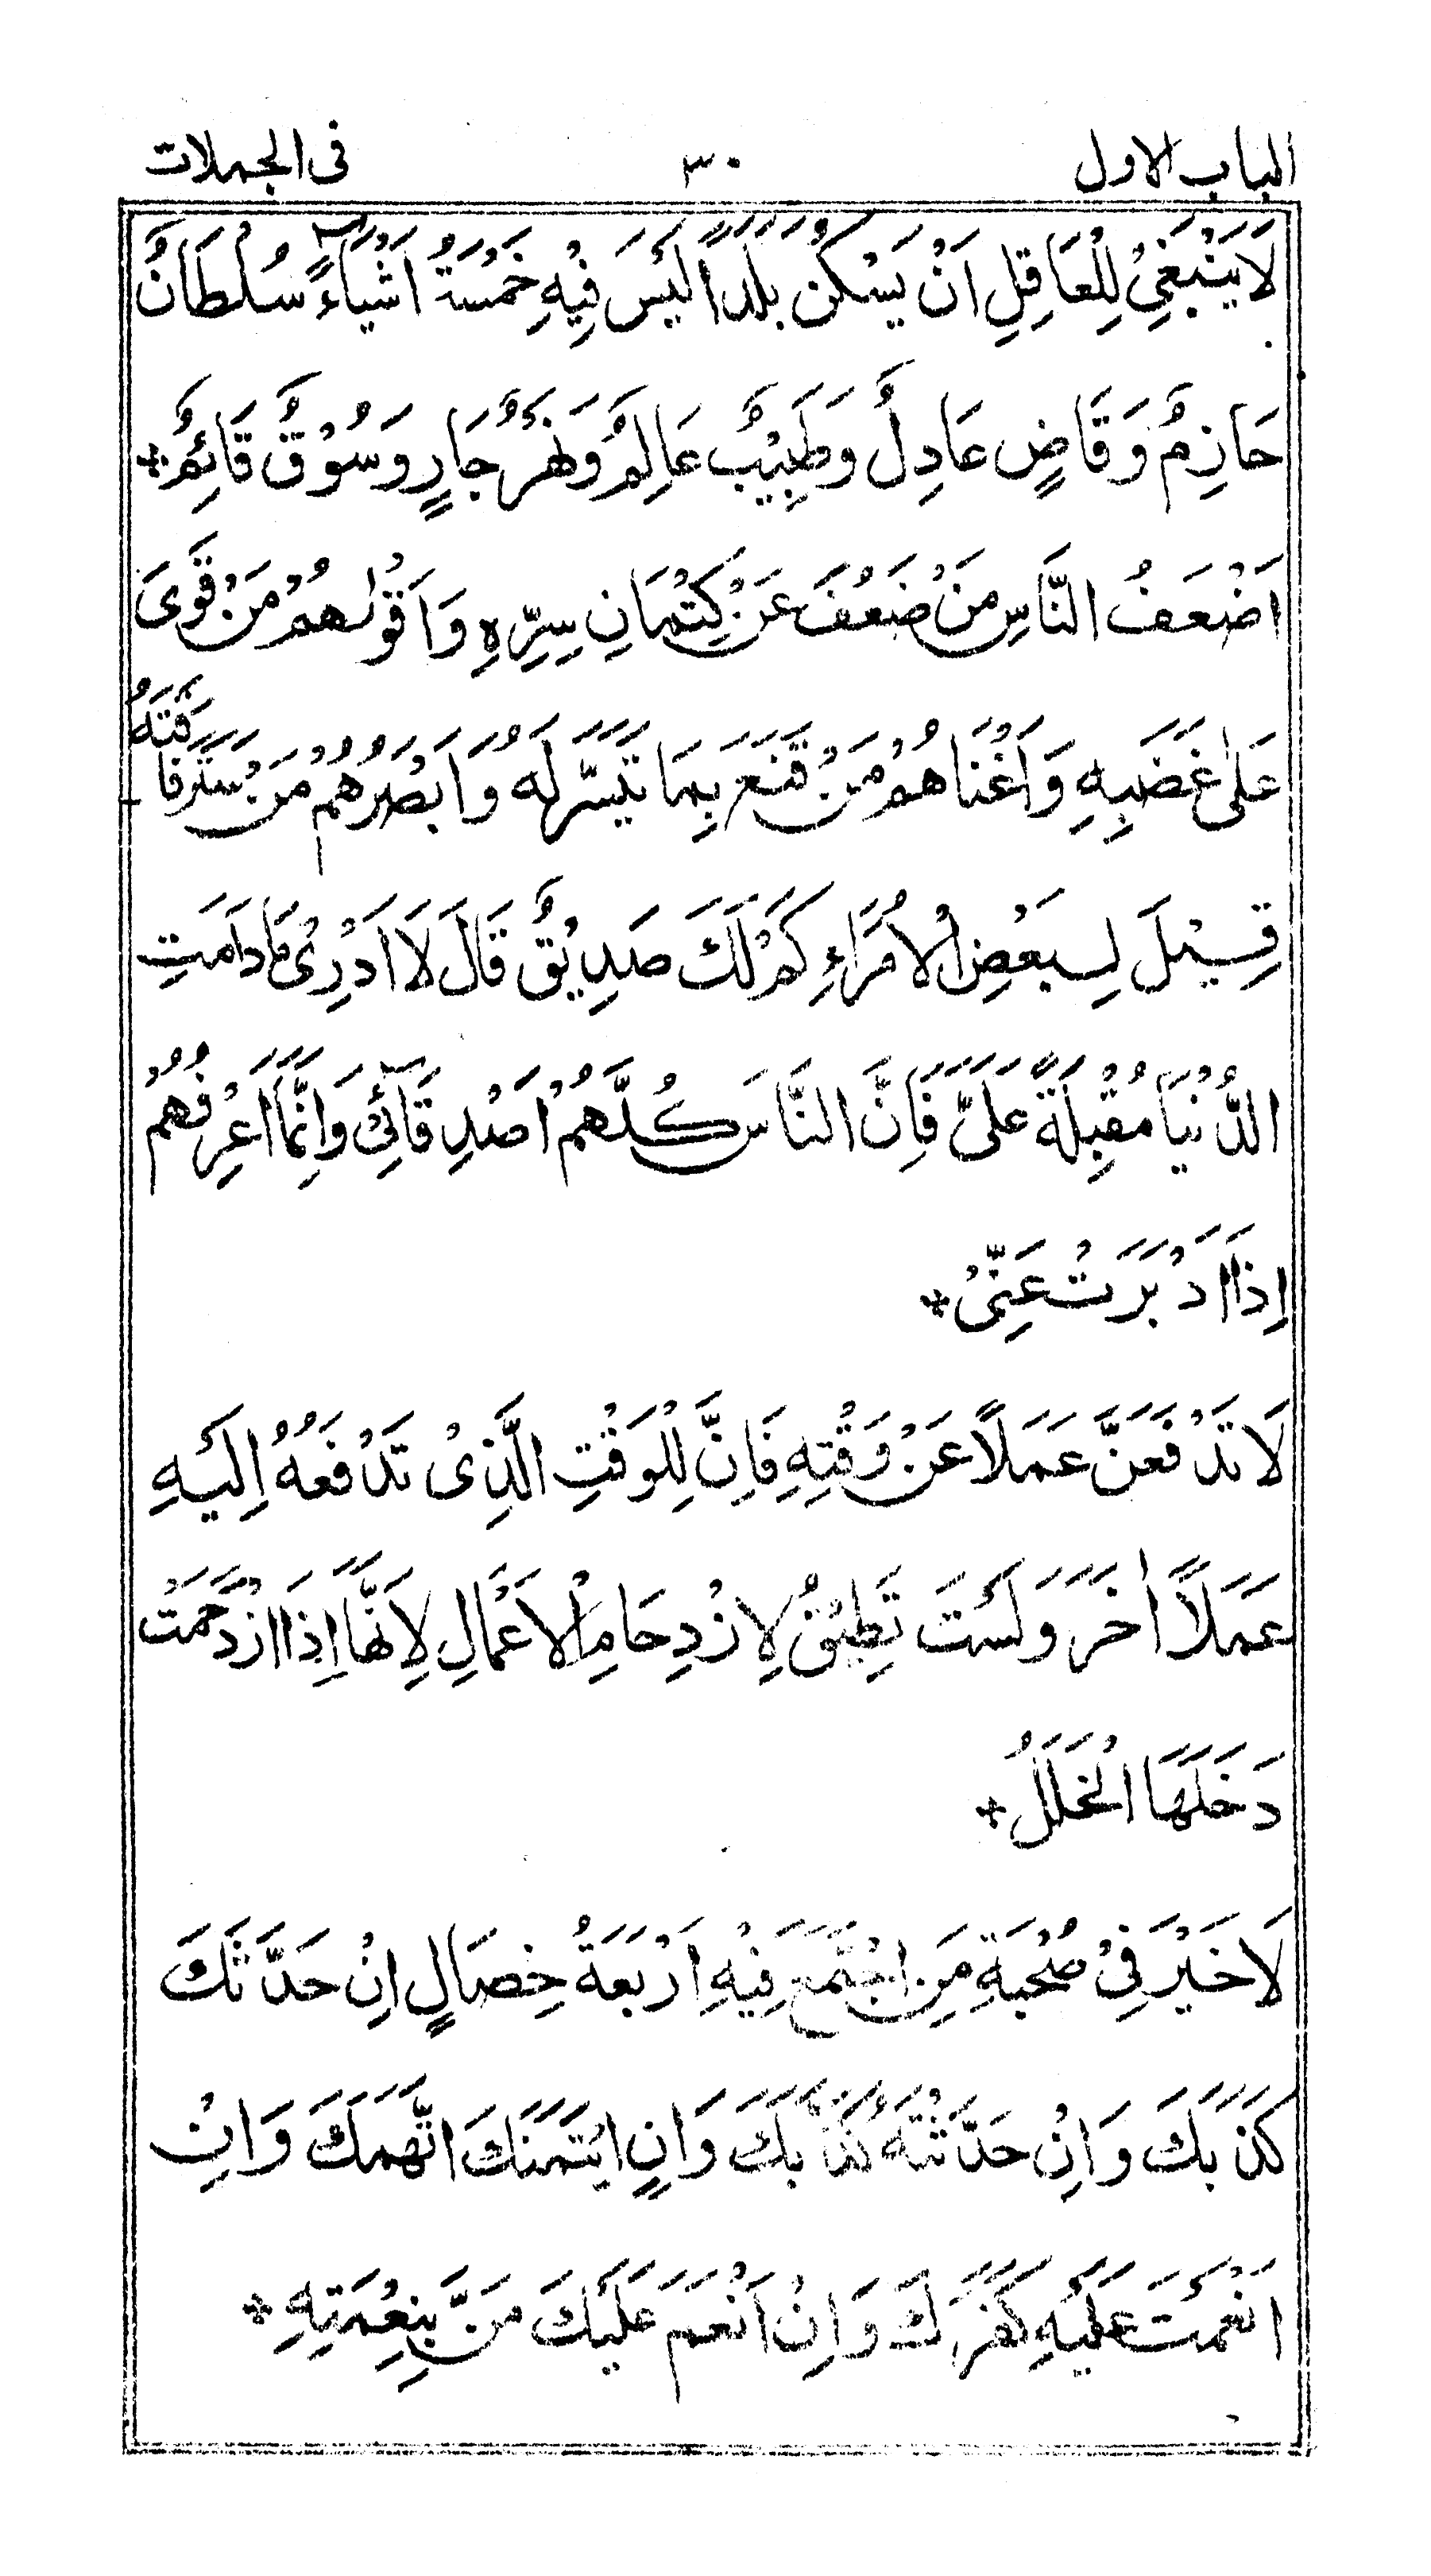 الباب الاول ٣٠ فى الجملات
لَا يَنْبَغِىْ لِلْعَاقِلِ اَنْ يَسْكُنَ بَلَدًا لَيْسَ فِيْهِ خَمْسَةُ اَشْيَاءٍ سُلْطَانٌ
حَازِمٌ وَقَاضٍ عَادِلٌ وَطَبِيْبٌ عَالِمٌ وَنَهْرٌ جَارٍ وَسُوْقٌ قَائِمٌ *
اَضْعَفُ النَّاسِ مَنْ ضَعُفَ عَنْ كِتْمَانِ سِرِّهِ وَاَقْوٰىهُمْ مَنْ قَوِىَ
عَلٰى غَضَبِهِ وَاَغْنَاهُمْ مَنْ قَنَعَ بِمَا تَيَسَّرَ لَهُ وَاَبْصَرُهُمْ مَنْ سَتَرَ فَاقَتَهُ
قِيْلَ لِبَعْضِ الْاُمَرَاءِ كَمْ لَكَ صَدِيْقٌ قَالَ لَا اَدْرِىْ مَادَامَتِ
الدُّنْيَا مُقْبِلَةً عَلَىَّ فَاِنَّ النَّاسَ كُلَّهُمْ اَصْدِقَآئِىْ وَاِنَّمَا اَعْرِفُهُمْ
اِذَا اَدْبَرَتْ عَنِّىْ *
لَا تَدْفَعَنَّ عَمَلًا عَنْ وَقْتِهِ فَاِنَّ لِلْوَقْتِ الَّذِىْ تَدْفَعُهُ اِلَيْهِ
عَمَلًا اٰخَرَ وَلَسْتَ تَطِيْقُ لِازْدِحَامِ الْاَعْمَالِ لِاَنَّهَا اِذَا ازْدَحَمَتْ
دَخَلَهَا الْخَلَلُ *
لَا خَيْرَ فِىْ صُحْبَةِ مَنِ اجْتَمَعَ فِيْهِ اَرْبَعَةُ خِصَالٍ اِنْ حَدَّثَكَ
كَذَبَكَ وَاِنْ حَدَّثْتَهُ كَذَّبَكَ وَاِنِ ايْتَمَنَكَ اتَّهَمَكَ وَاِنْ
اَنْعَمْتَ عَلَيْهِ كَفَرَكَ وَاِنْ اَنْعَمَ عَلَيْكَ مَنَّ بِنِعْمَتِهِ *